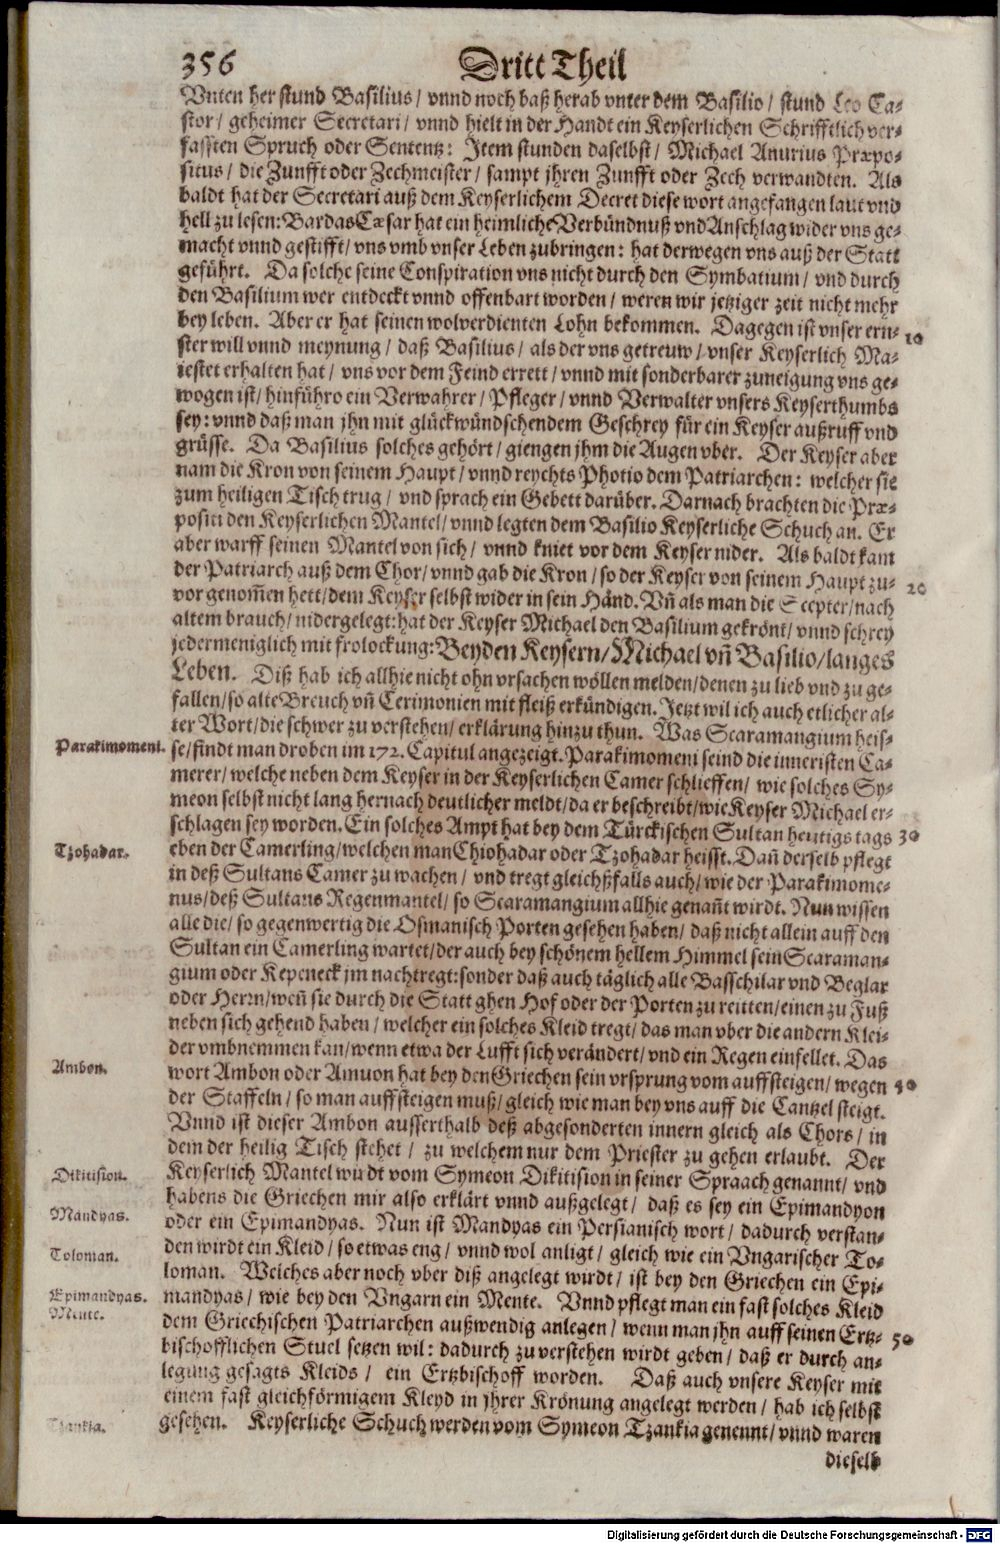 356
Dritt Theil
Vnten her stund Basilius/ vnnd noch baß herab vnter dem Basilio/ stund Leo Ca-
stor/ geheimer Secretari/ vnnd hielt in der Handt ein Keyserlichen Schrifftlich ver-
fassten Spruch oder Sententz: Item stunden daselbst/ Michael Anurius Præpo-
situs/ die Zunfft oder Zechmeister/ sampt jhren Zunfft oder Zech verwandten. Als
baldt hat der Secretari auß dem Keyserlichem Decret diese wort angefangen laut vnd
hell zu lesen: Bardas Cæsar hat ein heimliche Verbündnuß vnd Anschlag wider vns ge-
macht vnnd gestifft/ vns vmb vnser Leben zubringen: hat derwegen vns auß der Statt
geführt. Da solche seine Conspiration vns nicht durch den Symbatium/ vnd durch
den Basilium wer entdeckt vnnd offenbart worden/ weren wir jetziger zeit nicht mehr
bey leben. Aber er hat seinen wolverdienten Lohn bekommen. Dagegen ist vnser ern-
10
ster will vnnd meynung/ daß Basilius/ als der vns getreuw/ vnser Keyserlich Ma-
iestet erhalten hat/ vns vor dem Feind errett/ vnnd mit sonderbarer zuneigung vns ge-
wogen ist/ hinführo ein Verwahrer/ Pfleger/ vnnd Verwalter vnsers Keyserthumbs
sey: vnnd daß man jhn mit glückwündschendem Geschrey für ein Keyser außruff vnd
grüsse. Da Basilius solches gehört/ giengen jhm die Augen vber. Der Keyser aber
nam die Kron von seinem Haupt/ vnnd reychts Photio dem Patriarchen: welcher sie
zum heiligen Tisch trug/ vnd sprach ein Gebett darüber. Darnach brachten die Præ-
positi den Keyserlichen Mantel/ vnnd legten dem Basilio Keyserliche Schuch an. Er
aber warff seinen Mantel von sich/ vnnd kniet vor dem Keyser nider. Als baldt kam
der Patriarch auß dem Chor/ vnnd gab die Kron/ so der Keyser von seinem Haupt zu-
20
vor genom̄en hett/ dem Keyser selbst wider in sein Händ. Vn̄ als man die Scepter/ nach
altem brauch/ nidergelegt: hat der Keyser Michael den Basilium gekrönt/ vnnd schrey
jedermeniglich mit frolockung: Beyden Keysern/ Michael vn̄ Basilio/ langes
Leben. Diß hab ich allhie nicht ohn vrsachen wöllen melden/ denen zu lieb vnd zu ge-
fallen/ so alte Breuch vn̄ Cerimonien mit fleiß erkündigen. Jetzt wil ich auch etlicher al-
ter Wort/ die schwer zu verstehen/ erklärung hinzu thun. Was Scaramangium heis-
Parakimomeni.
se/ findt man droben im 172. Capitul angezeigt. Parakimomeni seind die inneristen Ca-
merer/ welche neben dem Keyser in der Keyserlichen Camer schlieffen/ wie solches Sy-
meon selbst nicht lang hernach deutlicher meldt/ da er beschreibt/ wie Keyser Michael er-
schlagen sey worden. Ein solches Ampt hat bey dem Türckischen Sultan heutigs tags
30
Tzohadar.
eben der Camerling/ welchen man Chiohadar oder Tzohadar heisst. Dan̄ derselb pflegt
in deß Sultans Camer zu wachen/ vnd tregt gleichßfalls auch/ wie der Parakimome-
nus/ deß Sultans Regenmantel/ so Scaramangium allhie genan̄t wirdt. Nun wissen
alle die/ so gegenwertig die Osmanisch Porten gesehen haben/ daß nicht allein auff den
Sultan ein Camerling wartet/ der auch bey schönem hellem Himmel sein Scaraman-
gium oder Kepeneck jm nachtregt: sonder daß auch täglich alle Basschilar vnd Beglar
oder Herrn/ wen̄ sie durch die Statt ghen Hof oder der Porten zu reitten/ einen zu Fuß
neben sich gehend haben/ welcher ein solches Kleid tregt/ das man vber die andern Klei-
der vmbnemmen kan/ wenn etwa der Lufft sich verändert/ vnd ein Regen einfellet. Das
Ambon.
wort Ambon oder Amuon hat bey den Griechen sein vrsprung vom auffsteigen/ wegen
40
der Staffeln/ so man auffsteigen muß/ gleich wie man bey vns auff die Cantzel steigt.
Vnnd ist dieser Ambon ausserthalb deß abgesonderten innern gleich als Chors/ in
dem der heilig Tisch stehet/ zu welchem nur dem Priester zu gehen erlaubt. Der
Dikitision.
Keyserlich Mantel wirdt vom Symeon Dikitision in seiner Spraach genannt/ vnd
habens die Griechen mir also erklärt vnnd außgelegt/ daß es sey ein Epimandyon
Mandyas.
oder ein Epimandyas. Nun ist Mandyas ein Persianisch wort/ dadurch verstan-
den wirdt ein Kleid/ so etwas eng/ vnnd wol anligt/ gleich wie ein Vngarischer To-
Toloman.
loman. Welches aber noch vber diß angelegt wirdt/ ist bey den Griechen ein Epi-
Epimandyas.
mandyas/ wie bey den Vngarn ein Mente. Vnnd pflegt man ein fast solches Kleid
Mente.
dem Griechischen Patriarchen außwendig anlegen/ wenn man jhn auff seinen Ertz-
50
bischofflichen Stuel setzen wil: dadurch zu verstehen wirdt geben/ daß er durch an-
legung gesagts Kleids/ ein Ertzbischoff worden. Daß auch vnsere Keyser mit
einem fast gleichförmigem Kleyd in jhrer Krönung angelegt werden/ hab ich selbst
Tzankia.
gesehen. Keyserliche Schuch werden vom Symeon Tzankia genennt/ vnnd waren
dieselb
Digitalisierung gefördert durch die Deutsche Forschungsgemeinschaft - DFG